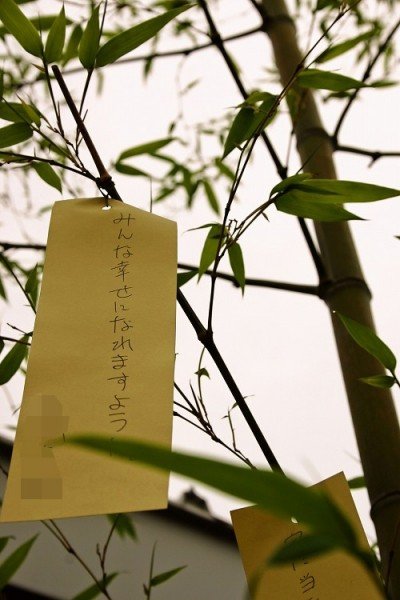 みんな幸せになれますよう
に当